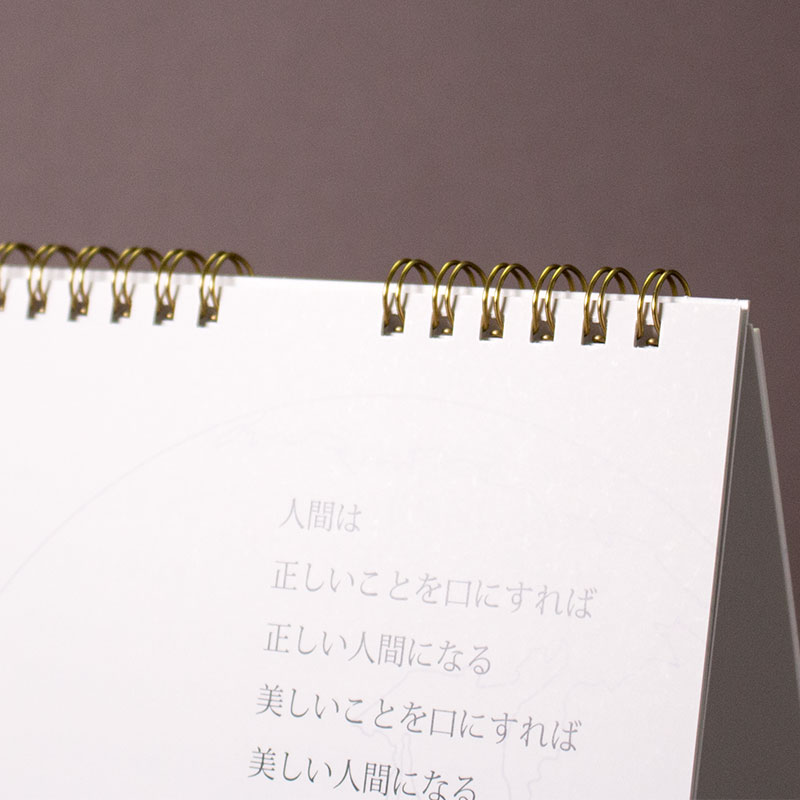 人間は
正しいことを口にすれば
正しい人間になる
美しいことを口にすれば
美しい人間になる